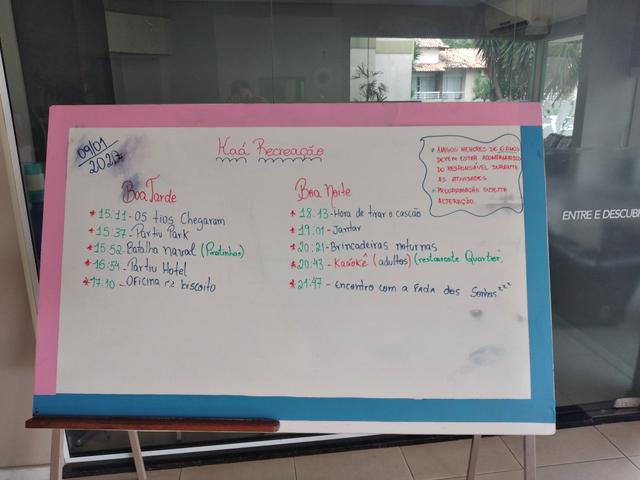 09/01
Kaá Recreação
• AMIGOS MENORES DE 6 ANOS
DEVEM ESTAR ACOMPANHADOS
DO RESPONSÁVEL DURANTE
AS ATIVIDADES
• PROGRAMAÇÃO SUJEITA
ALTERAÇÃO.
Boa Tarde
* 15:11 - OS tios Chegaram
* 15:37 - Partiu Park
* 15:52 - Batalha naval (Piratinhas)
* 16:54 - Partiu Hotel
* 17:10 - Oficina de biscoito
Boa Noite
* 18:13 - Hora de tirar o cascão
* 19:01 - Jantar
* 20:21 - Brincadeiras noturnas
* 20:43 - Karaokê (adultos) (restaurante Quartier)
* 21:47 - Encontro com a FADA dos Sonhos zzz
ENTRE E DESCUB